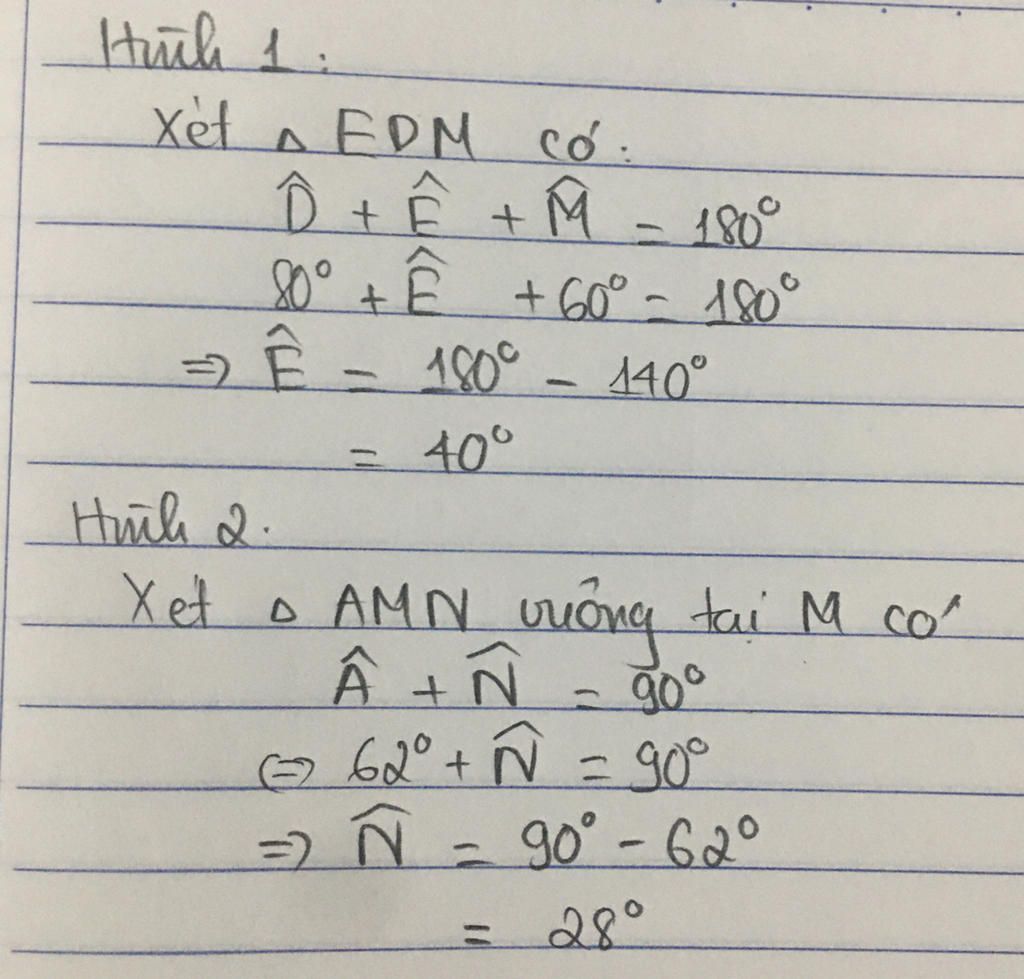 Hình 1:
Xét △ EDM có:
D̂ + Ê + M̂ = 180°
80° + Ê + 60° = 180°
=> Ê = 180° - 140°
= 40°
Hình 2.
Xét △ AMN vuông tại M có
Â + N̂ = 90°
<=> 62° + N̂ = 90°
=> N̂ = 90° - 62°
= 28°